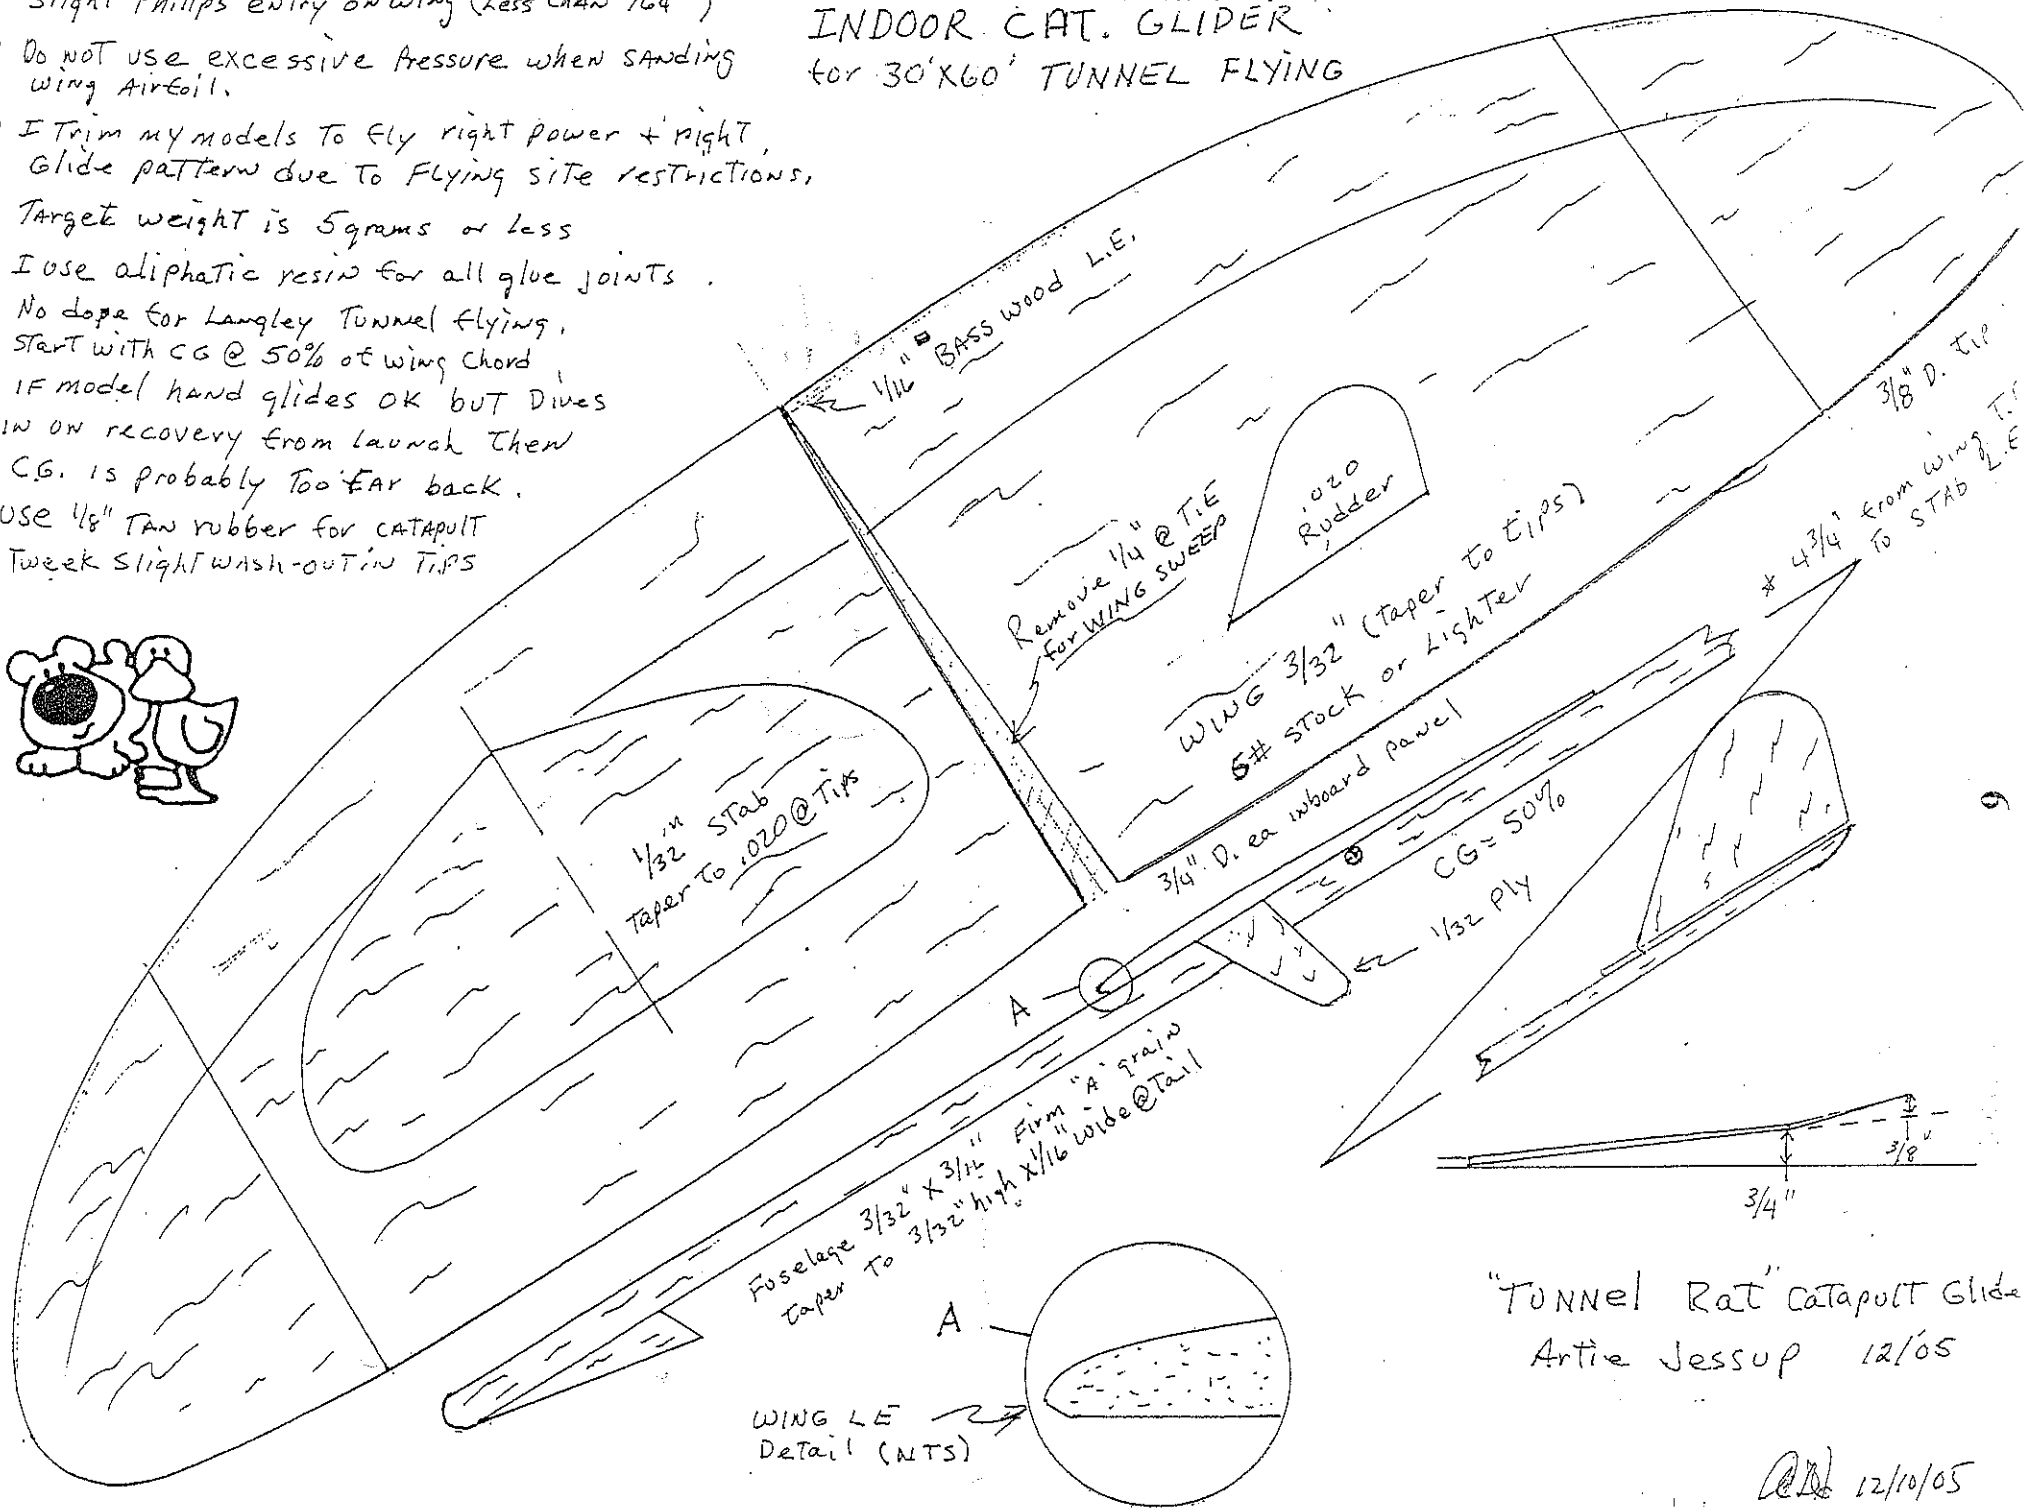 Slight Phillips entry on wing (Less than 1/64")
Do NOT use excessive Pressure when sanding
wing Airfoil.
I Trim my models To fly right power + right
Glide pattern due To Flying site restrictions,
Target weight is 5 grams or Less
I use aliphatic resin for all glue joints.
No dope for Langley Tunnel flying.
Start with CG @ 50% of wing Chord
IF model hand glides OK but Dives
IN on recovery from Launch Then
C.G. is probably Too far back.
use 1/8" TAN rubber for CATAPULT
Tweek Slight wash-out in Tips
INDOOR CAT. GLIDER
for 30'X60' TUNNEL FLYING
1/16" BASS wood L.E.
3/8" D. tip
* 4 3/4" from wing T.E
To STAb L.E
.020
Rudder
Remove 1/4" @ T.E
for WING SWEEP
WING 3/32" (taper to tips)
5# STOCK or Lighter
3/4" D. ea inboard panel
1/32" STab
Taper To .020 @ Tips
CG = 50%
1/32 Ply
A
Fuselage 3/32" X 3/16" Firm "A" grain
taper To 3/32" high X 1/16" wide @ Tail
3/8"
3/4"
A
WING LE
Detail (NTS)
"TUNNel Rat" Catapult Glide
Artie Jessup 12/05
12/10/05
9